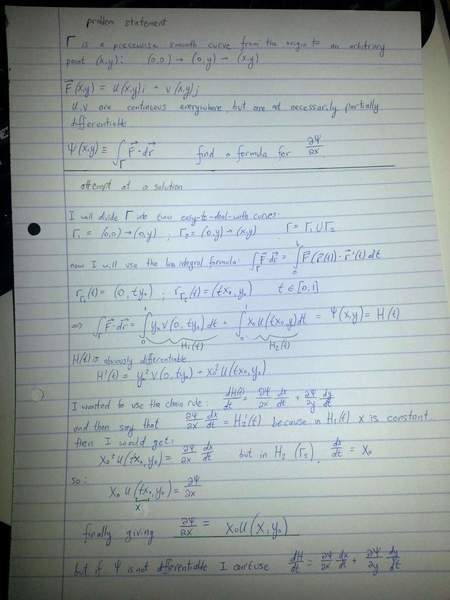 problem statement
Γ is a piecewise smooth curve from the origin to an arbitrary
point (x,y): (0,0) → (0,y) → (x,y)
F(x,y) = u(x,y)i + v(x,y)j
u,v are continuous everywhere, but are not necessarily partially
differentiable
Ψ(x,y) ≡ ∫_Γ F·dr find a formula for ∂Ψ/∂x
attempt at a solution
I will divide Γ into two easy-to-deal-with curves:
Γ₁ = (0,0)→(0,y) ; Γ₂ = (0,y)→(x,y) Γ = Γ₁∪Γ₂
now I will use the line integral formula: ∫_Γ F·dr = ∫ F(r(t))·r'(t)dt
r_Γ₁(t) = (0, ty₀) ; r_Γ₂(t) = (tx₀, y₀) t∈[0,1]
⇒ ∫_Γ F·dr = ∫₀¹ y₀v(0, ty₀)dt + ∫₀¹ x₀u(tx₀, y₀)dt = Ψ(x,y) = H(t)
H₁(t) H₂(t)
H(t) is obviously differentiable
H'(t) = y₀² v(0, ty₀) + x₀² u(tx₀, y₀)
I wanted to use the chain rule: dH(t)/dt = ∂Ψ/∂x dx/dt + ∂Ψ/∂y dy/dt
and then say that ∂Ψ/∂x dx/dt = H₂'(t) because in H₁(t) x is constant.
then I would get:
x₀² u(tx₀, y₀) = ∂Ψ/∂x dx/dt but in H₂ (Γ₂), dx/dt = x₀
so:
x₀ u(tx₀, y₀) = ∂Ψ/∂x
x
finally giving ∂Ψ/∂x = x₀u(x, y₀)
but if Ψ is not differentiable I can't use dH/dt = ∂Ψ/∂x dx/dt + ∂Ψ/∂y dy/dt